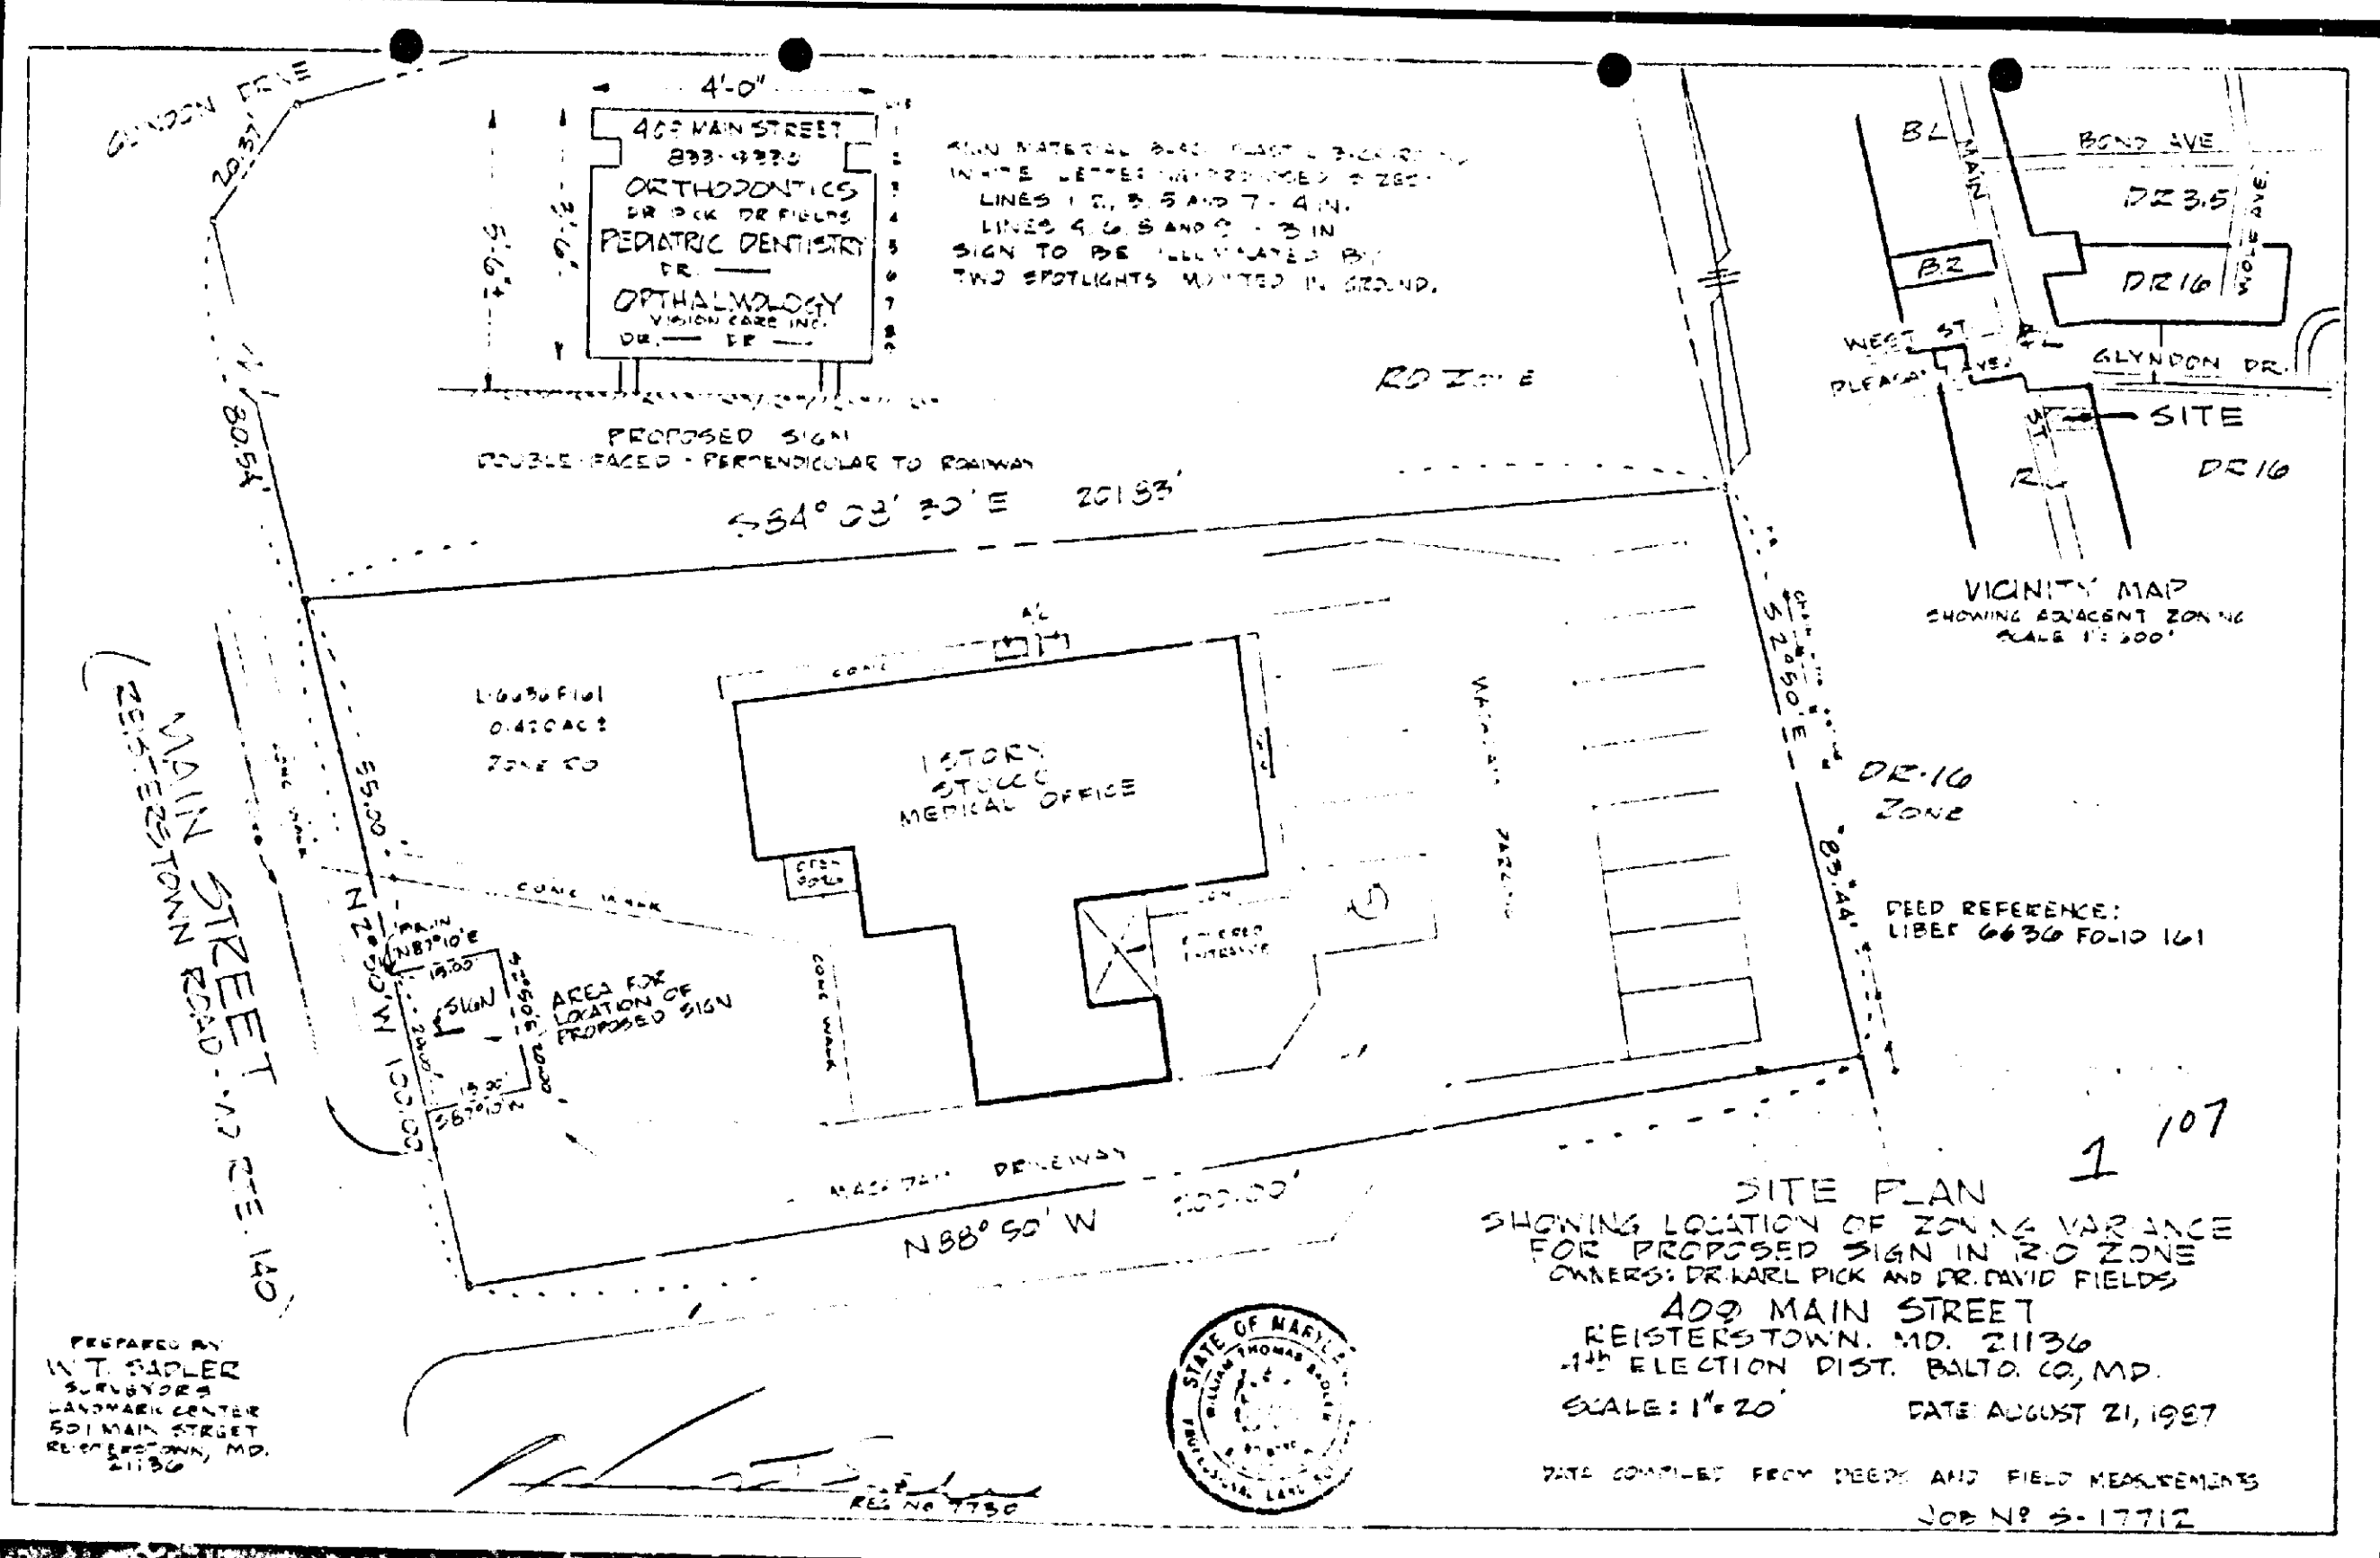 GLYNDON DRIVE
20.37'
N
80.54'
4'-0"
5'-6"±
3'-6"
409 MAIN STREET
ORTHODONTICS
DR PICK DR FIELDS
PEDIATRIC DENTISTRY
DR. ——
OPTHALMOLOGY
VISION CARE INC.
DR. —— DR ——
1
2
3
4
5
6
7
8
SIGN MATERIAL
LINES 1, 2, 3, 5 AND 7 - 4 IN.
LINES 4, 6, 8 AND 9 - 3 IN
SIGN TO BE ILLUMINATED BY
TWO SPOTLIGHTS MOUNTED IN GROUND.
PROPOSED SIGN
DOUBLE FACED - PERPENDICULAR TO ROADWAY
RO ZONE
BL
MAIN
ST
BOND AVE
DR 3.5
B2
DR16
WEST ST
PLEASANT AVE.
GLYNDON DR.
SITE
DR16
VICINITY MAP
SHOWING ADJACENT ZONING
E 201.83'
A/C
CONC
L·6636 F161
0.420 AC ±
ZONE RO
1 STORY
STUCCO
MEDICAL OFFICE
OPEN
PORCH
COVERED
ENTRANCE
MACADAM PARKING
S 2°50' E
83.44'
DR·16
ZONE
DEED REFERENCE:
LIBER 6636 FOLIO 161
MAIN STREET
(REISTERSTOWN ROAD
RTE. 140)
CONC WALK
55.00'
N 2°50' W 100.00'
CONC WALK
N87°10'E
15.00'
SIGN
S2°50'E 20.00
20.00'
15.00'
S87°10'W
AREA FOR
LOCATION OF
PROPOSED SIGN
CONC WALK
MACADAM DRIVEWAY
N88° 50' W 200.00'
1 107
SITE PLAN
SHOWING LOCATION OF ZONING VARIANCE
FOR PROPOSED SIGN IN R·O ZONE
OWNERS: DR. KARL PICK AND DR. DAVID FIELDS
409 MAIN STREET
REISTERSTOWN. MD. 21136
4th ELECTION DIST. BALTO. CO., MD.
SCALE: 1"= 20' DATE: AUGUST 21, 1987
DATA COMPILED FROM DEEDS AND FIELD MEASUREMENTS
JOB Nº S-17712
PREPARED BY
W. T. SADLER
SURVEYORS
LANDMARK CENTER
501 MAIN STREET
REISTERSTOWN, MD.
21136
REG Nº 7730
STATE OF MARYLAND
WILLIAM THOMAS SADLER
PROFESSIONAL LAND